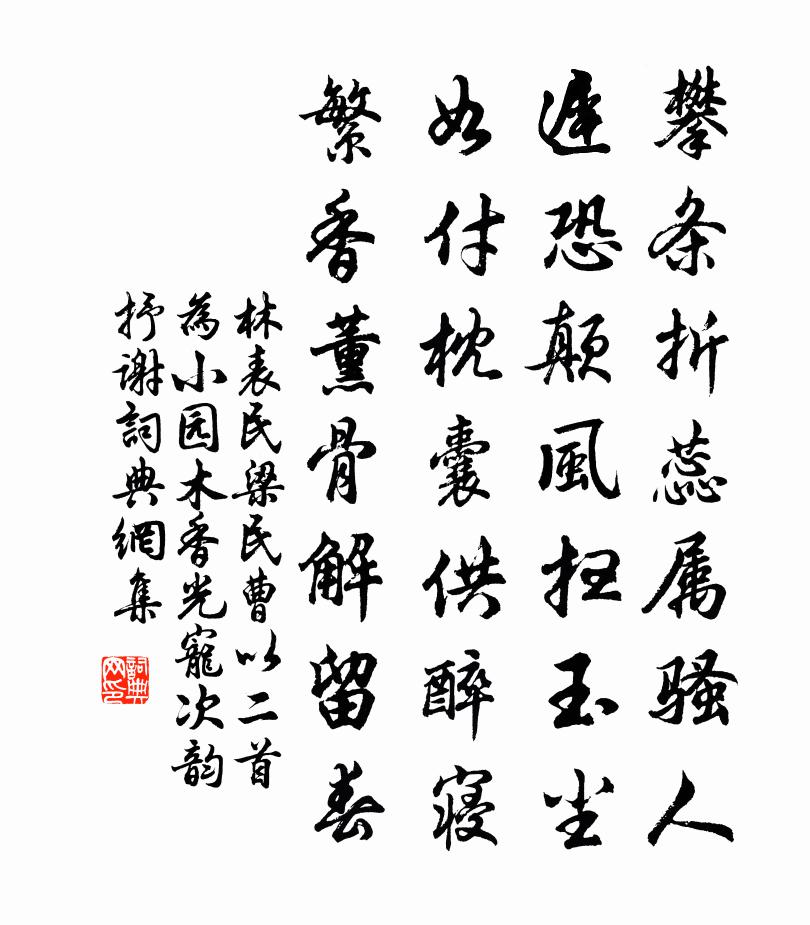 攀条折蕊属骚人
遲恐颠風扫玉尘
如付枕囊供醉寝
繁香薰骨解留春
林表民梁民曹以二首
為小园木香光寵次韵
抒谢詞典網集
詞典網印